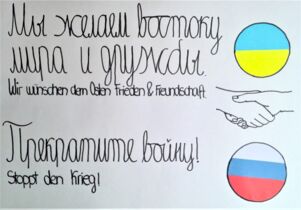 Мы желаем востоку
мира и дружбы.
Wir wünschen dem Osten Frieden & Freundschaft.
Прекратите войну!
Stoppt den Krieg!